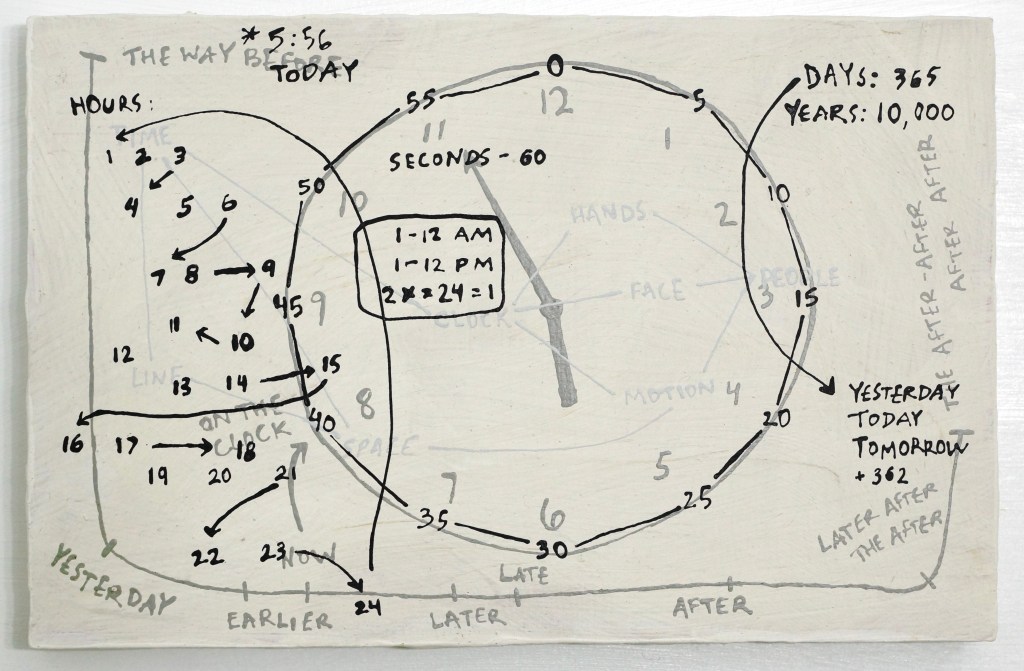 * 5:56
TODAY
THE WAY BEFORE
HOURS:
TIME
1 2 3
4 5 6
7 8 9
11 10
12
13 14 15
LINE
ON THE
CLOCK
16 17 18
19 20 21
22 23 24
NOW
YESTERDAY
EARLIER
LATER
LATE
AFTER
0
5
10
15
20
25
30
35
40
45
50
55
12
1
2
3
4
5
6
7
8
9
10
11
SECONDS - 60
1-12 AM
1-12 PM
HANDS
FACE
PEOPLE
CLOCK
MOTION
SPACE
DAYS: 365
YEARS: 10,000
YESTERDAY
TODAY
TOMORROW
+ 362
LATER AFTER
THE AFTER
THE AFTER-AFTER
AFTER AFTER